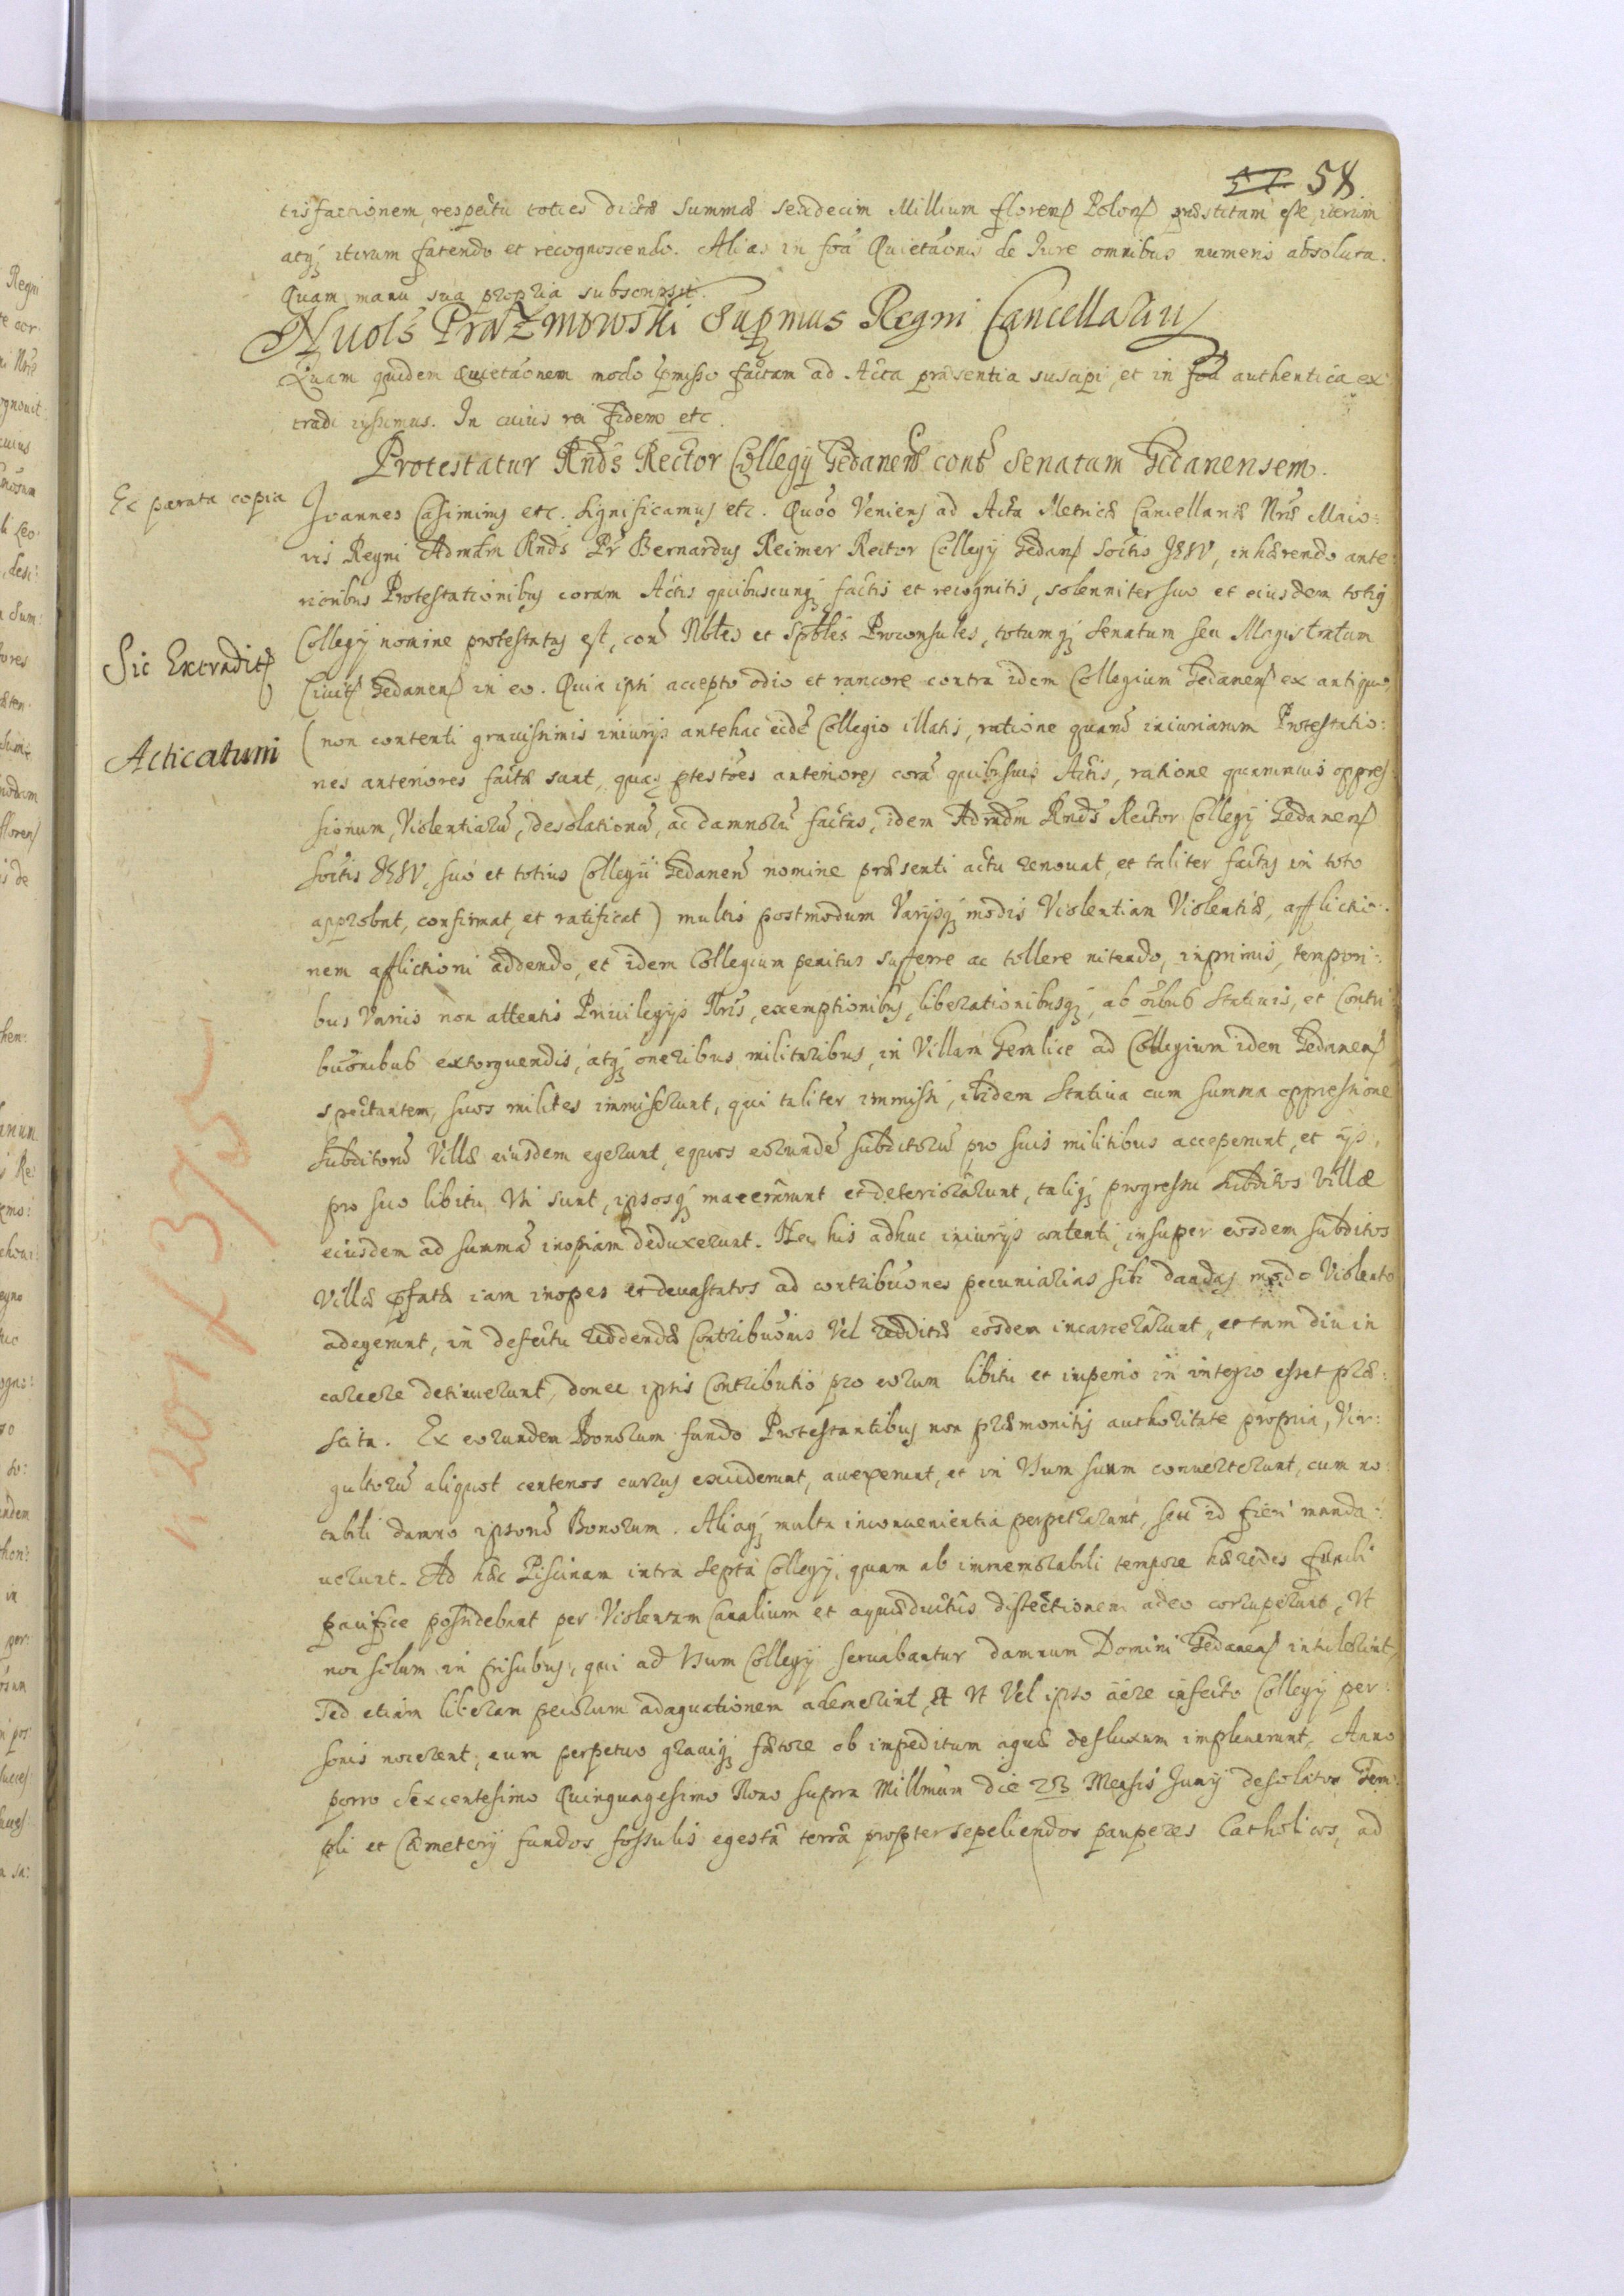 57 58.
tisfactionem, respectu toties dictæ summæ sendecim Millium florenſ Polonſ præstitam esse, iterum
atq́; iterum fatendo et recognoscendo. Alias in foã Quietãonis de Iure omnibus numeris absoluta.
Quam manu sua propria subscripsit.
Prażmowski Supmus Regni Cancellariuſ
Quam quidem Quietãonem modo pmisso factam ad Acta præsentia suscipi, et in foã authentica ex:
tradi iussimus. In cuius rei fidem etc.
Protestatur Rnds Rector Collegij Gedanens conts Senatum Gedanensem.
Ex parata copia
Ioannes Casimirus etc. Significamus etc. Quõ Veniens ad Acta Metricæ Cancellariæ Nrã Maio:
ris Regni Admdm Rnds Pr Bernardus Reimer Rector Collegij Gedanſ Socits IESV, inhærendo ante:
rioribus Protestationibus coram Actis quibuscunq́; factis et recognitis, solenniter suo et eiusdem totiq
Sic Extraditſ
Collegij nomine protestatus est, con Nbles et Spbles Proconsules, totumq́; Senatum seu Magistratum
Ciuitſ Gedanenſ in eo. Quia ipsi accepto odio et rancore contra idem Collegium Gedanenſ ex antiquo,
Acticatum
(non contenti grauissimis iniurijs antehac eidẽ Collegio illatis, ratione quarũ iniuriarum Protestatio:
nes anteriores factæ sunt, quas ptestões anteriores corã quibusuis Actis, ratione quarumuis oppres:
sionum, Violentiarũ, desolationũ, ac damnorũ factas, idem Admdm Rnds Rector Collegij Gedanenſ
Socits IESV, suo et totius Collegii Gedanens nomine præsenti actu renouat, et taliter factas in toto
approbat, confirmat, et ratificat) multis postmodum Varijsq́; modis Violentiam Violentiæ, afflictio:
nem afflictioni addendo, et idem Collegium penitus sufferre ac tollere nitendo, inprimis, tempori:
bus Varijs non attentis Priuilegijs Nris, exemptionibus, liberationibusq́;, ab oĩbus Statiuis, et Contri:
buõnibus extorquendis, atq́; oneribus militaribus, in Villam Gemlice ad Collegium idem Gedanenſ
spectantem, suos milites immiserunt, qui taliter immissi, ibidem Statiua cum summa oppressione
Subditorũ Villæ eiusdem egerunt, equos eorundẽ subditorũ pro suis militibus acceperunt, et ijs,
pro suo libitu Vsi sunt, ipsosq́; macerârunt et deteriorârunt, taliq́; progressu Subditos Villæ
eiusdem ad summã inopiam deduxerunt. Nec his adhuc iniurijs contenti, insuper eosdem subditos
Villæ pfatæ iam inopes et deuastatos ad contribuõnes pecuniarias sibi dandas modo Violento
adegerunt, in defectu reddendæ Contribuõnis Vel redditæ eosdem incarcerârunt, et tam diu in
carcere detinuerunt, donec ipsis Contributio pro eorum libitu et imperio in integro esset præ:
stita. Ex eorundem Bonorum fundo Protestantibus non præmonitis authoritate propria, Vir:
gultorũ aliquot centenos currus exciderunt, auexerunt, et in Vsum suum conuerterunt, cum no:
tabili damno ipsorũ Bonorum. Aliaq́; multa inconuenientia perpetrarunt, seu id fieri manda:
uerunt. Ad hæc Piscinam intra Septa Collegij, quam ab immemorabili tempore hæredes fundi
pacifice possidebant per Violentam Canalium et aquæductûs dissectionem adeo corruperunt, Vt
non solum in piscibus, qui ad Vsum Collegij seruabantur damnum Domini Gedanenſ intulerint,
Sed etiam liberam pecorum adaquationem ademerint, et Vt Vel ipso aëre infecto Collegij per:
sonis nocerent, eum perpetuo grauiq́; fætore ob impeditum aquæ defluxum impleuerunt. Anno
porro Sexcentesimo Quinquagesimo Nono supra Millmum die 23 Mensis Iunij desolatos Tem:
pli et Cæmeterij fundos fossulis egestâ terrâ propter sepeliendos pauperes Catholicos, ad